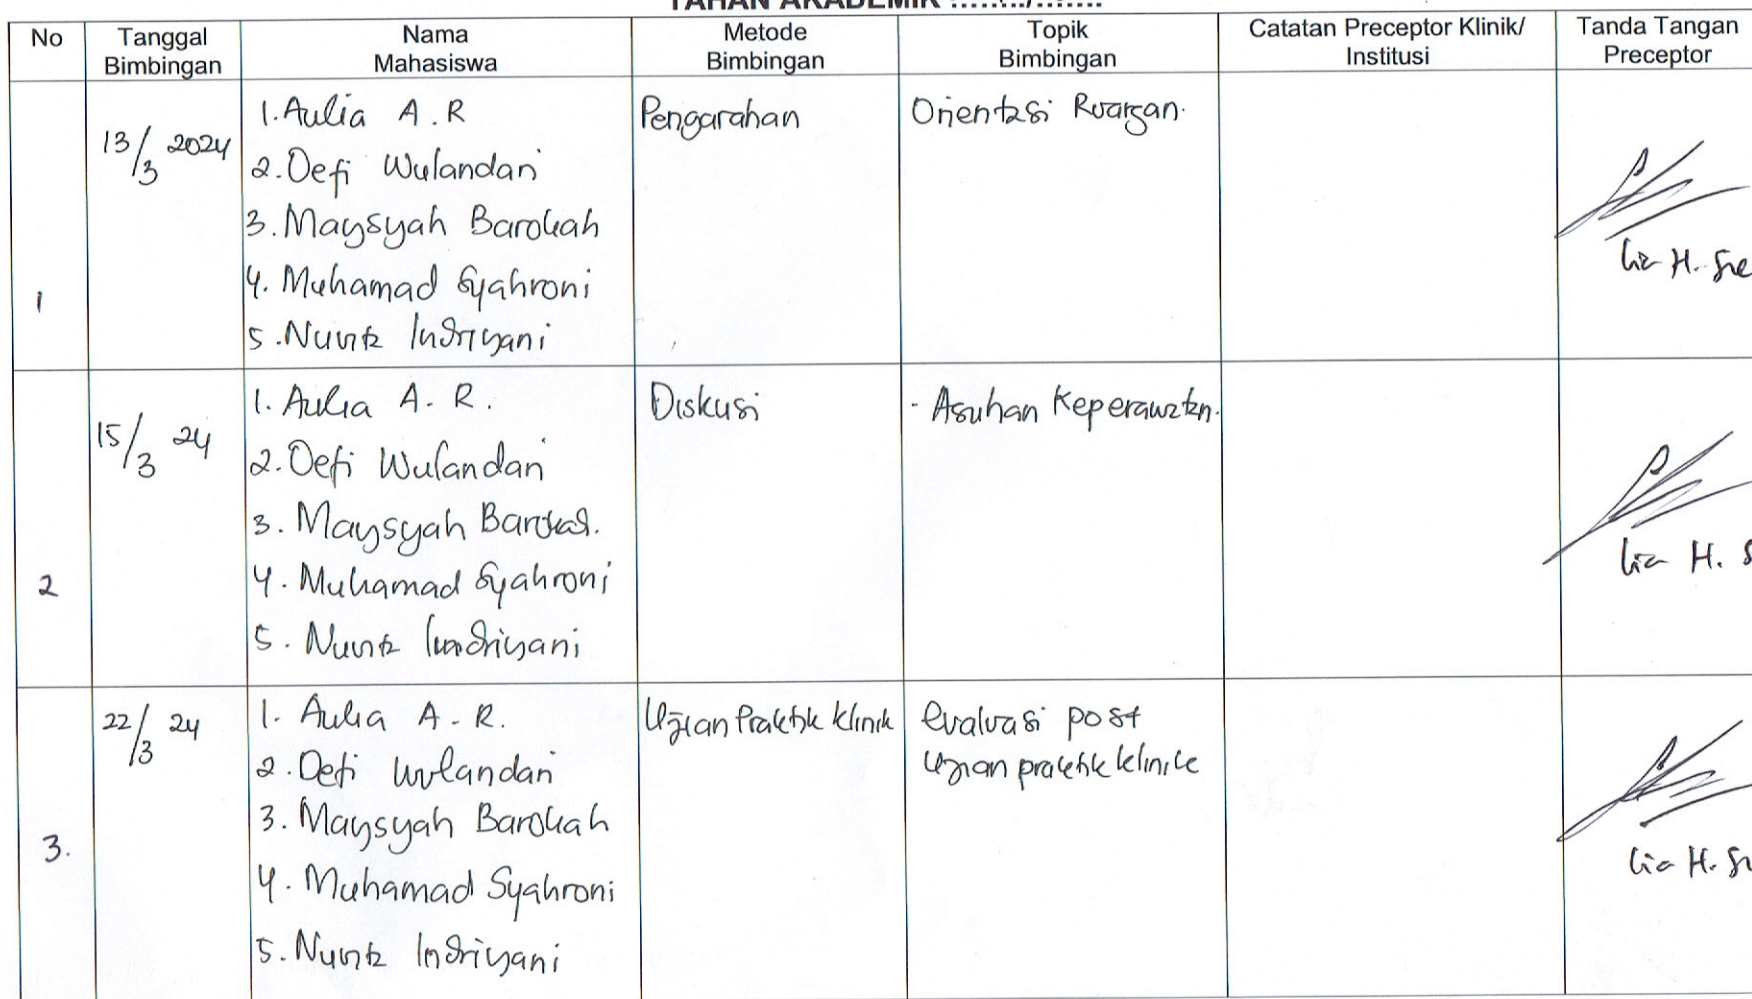 TAHAN AKADEMIK ......../........
No
Tanggal
Bimbingan
Nama
Mahasiswa
Metode
Bimbingan
Topik
Bimbingan
Catatan Preceptor Klinik/
Institusi
Tanda Tangan
Preceptor
1
13/3 2024
1. Aulia A.R
2. Defi Wulandari
3. Maysyah Barokah
4. Muhamad Syahroni
5. Nunik Indriyani
Pengarahan
Orientasi Ruangan.
Lia H.
2
15/3 24
1. Aulia A. R.
2. Defi Wulandari
3. Maysyah Barokah.
4. Muhamad Syahroni
5. Nunik Indriyani
Diskusi
- Asuhan Keperawatan.
Lia H. S
3.
22/3 24
1. Aulia A. R.
2. Defi Wulandari
3. Maysyah Barokah
4. Muhamad Syahroni
5. Nunik Indriyani
Ujian Praktik Klinik
Evaluasi post
Ujian praktik klinik
Lia H.